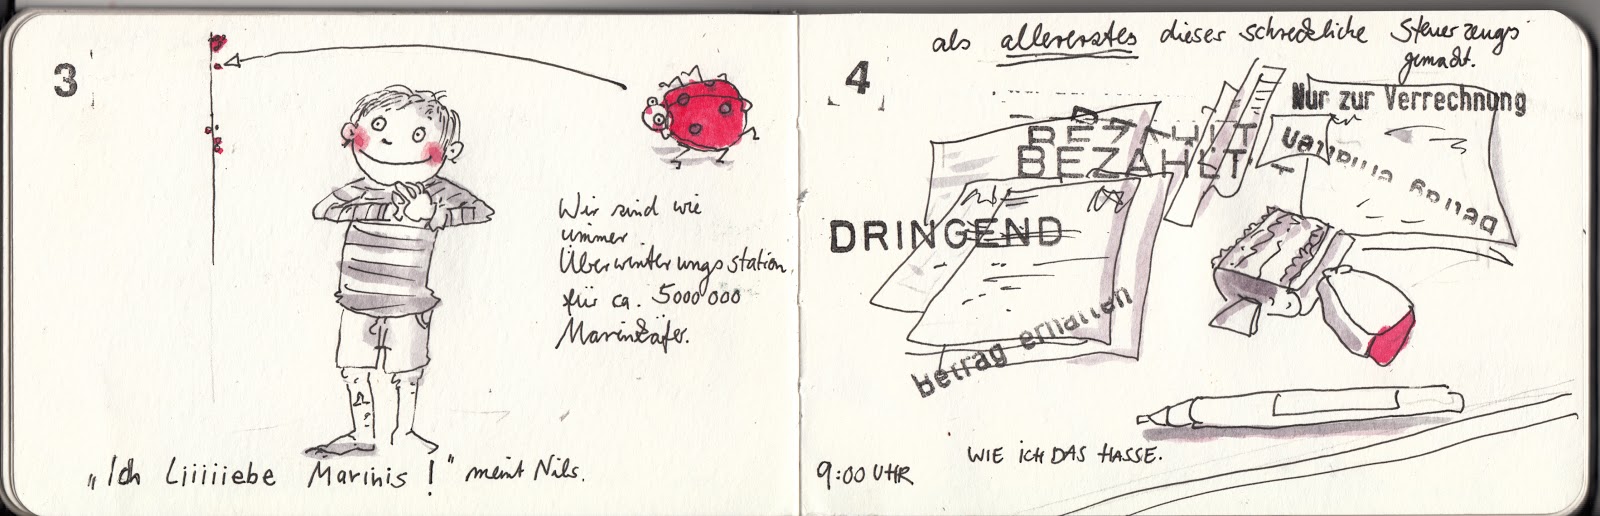 3
Wir sind wie
immer
Überwinterungsstation
für ca. 5000000
Marienkäfer.
„Ich Liiiiiebe Marinis!" meint Nils.
4
als allererstes dieser schreckliche Steuerzeugs
gemacht.
Nur zur Verrechnung
BEZAHLT
BEZAHLT
Betrag erhalten
DRINGEND
Betrag erhalten
WIE ICH DAS HASSE.
9:00 UHR